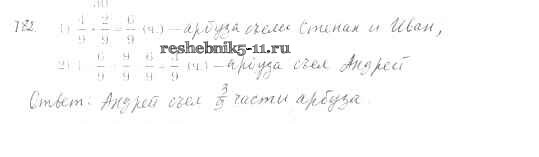 30
782. 1) 4/9 + 2/9 = 6/9 (ч.) – арбуза съели Степан и Иван,
reshebnik5-11.ru
2) 1 - 6/9 = 9/9 - 6/9 = 3/9 (ч.) – арбуза съел Андрей
Ответ: Андрей съел 3/9 части арбуза.